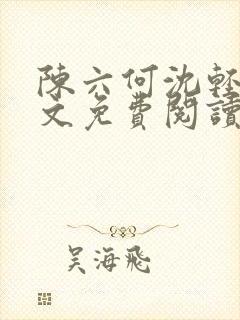 陳六何沈輕
文免費閱讀
吴海飛